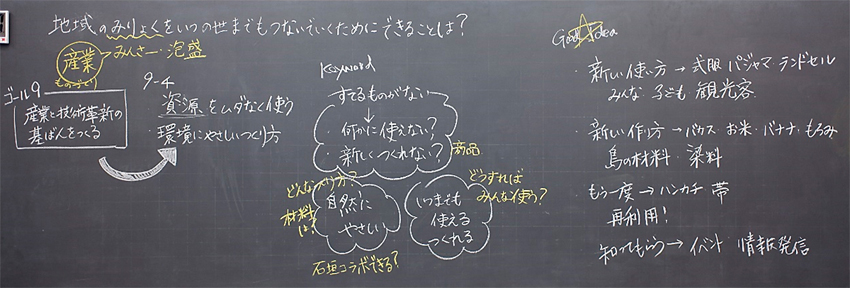 地域のみりょくをいつの世までもつないでいくためにできることは？
産業
みんさー・泡盛
ものづくり
ゴール9
産業と技術革新の
基ばんをつくる
9-4
資源をムダなく使う
・環境にやさしいつくり方
Keyword
すてるものがない
・何かに使えない？
・新しくつくれない？
商品
どんなつくり方？
材料は？
自然に
やさしい
石垣コラボできる？
どうすれば
みんな使う？
いつまでも
使える
つくれる
Good Idea
・新しい使い方→式服 パジャマ ランドセル
みんな 子ども 観光客
・新しい作り方→バガス・お米・バナナ・もろみ
島の材料・染料
・もう一度→ハンカチ 帯
再利用！
・知ってもらう→イベント 情報発信